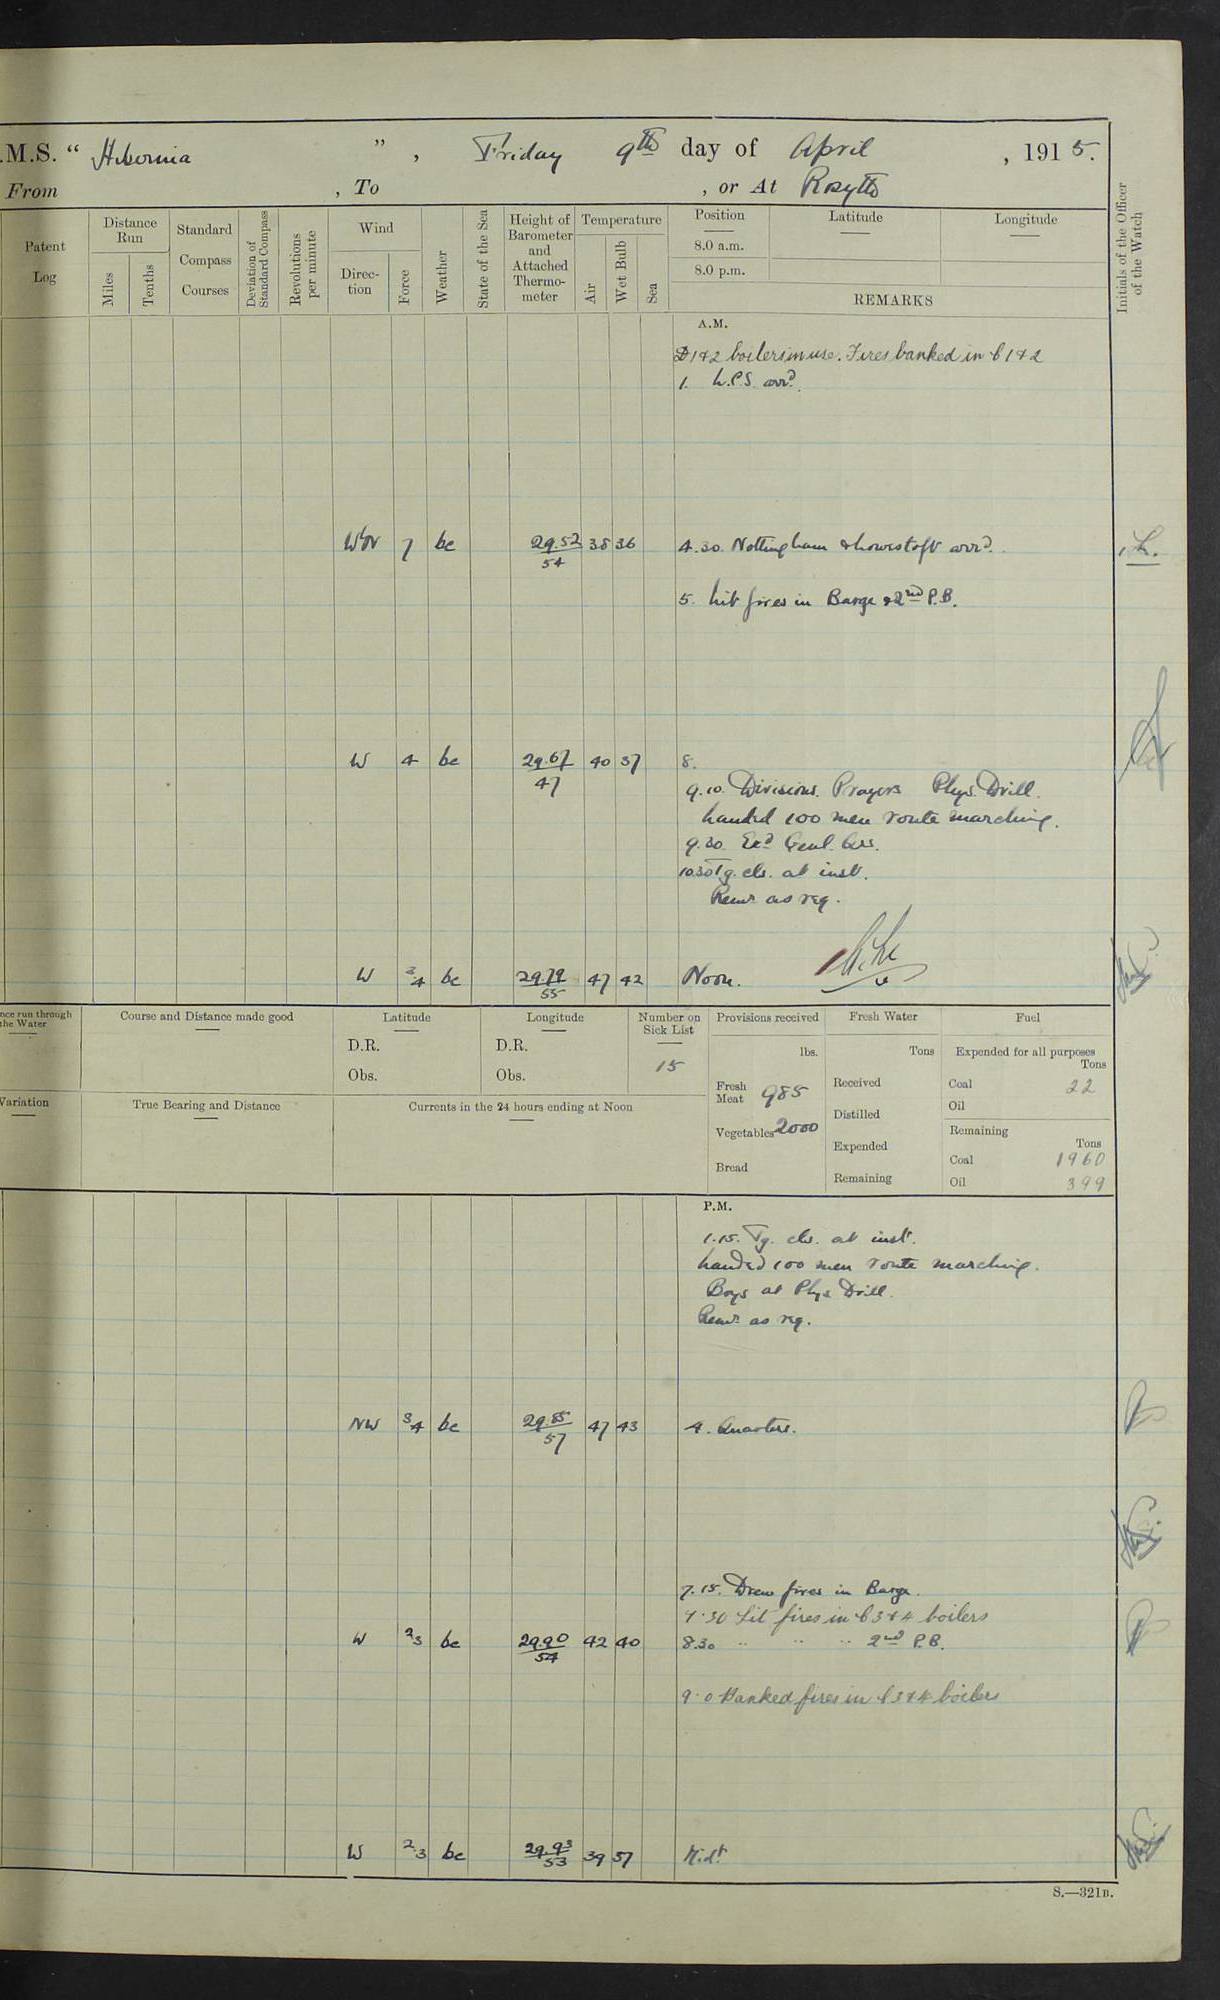 .M.S. “ Hibernia ” , Friday 9th day of April , 1915.
From , To , or At Rosyth
Patent Log
Distance Run
Miles
Tenths
Standard Compass Courses
Deviation of Standard Compass
Revolutions per minute
Wind
Direction
Force
Weather
State of the Sea
Height of Barometer and Attached Thermometer
Temperature
Air
Wet Bulb
Sea
Position
Latitude
Longitude
8.0 a.m.
8.0 p.m.
REMARKS
Initials of the Officer of the Watch
A.M.
D 1 & 2 boilers in use. Fires banked in C 1 & 2
1. L.C.S. arrd.
W'N 7 bc 29.52 / 54 38 36 4.30. Nottingham & Lowestoft arrd.
5. Lit fires in Barge & 2nd P.B.
W 4 bc 29.67 / 47 40 37 8.
9.10. Divisions. Prayers Phys. Drill.
Landed 100 men route marching.
9.30. Exd Genl. Qrs.
10.30 Tg. cls. at inst.
Remr as req.
W 3/4 bc 29.79 / 55 47 42 Noon.
nce run through the Water
Course and Distance made good
Latitude
D.R.
Obs.
Longitude
D.R.
Obs.
Number on Sick List
15
Provisions received
lbs.
Fresh Meat 985
Vegetables 2000
Bread
Fresh Water
Tons
Received
Distilled
Expended
Remaining
Fuel
Expended for all purposes
Tons
Coal 22
Oil
Remaining
Tons
Coal 1960
Oil 399
Variation
True Bearing and Distance
Currents in the 24 hours ending at Noon
P.M.
1.15. Tg. cls. at inst.
Landed 100 men route marching.
Boys at Phys Drill.
Remr as req.
NW 3/4 bc 29.85 / 57 47 43 4. Quarters.
7.15. Drew fires in Barge.
7.30 Lit fires in C 3 & 4 boilers
W 2/3 bc 29.90 / 54 42 40 8.30 " " " 2nd P.B.
9.0 Banked fires in C 3 & 4 boilers
W 2.3 bc 29.93 / 53 39 37 Midt
S.—321B.